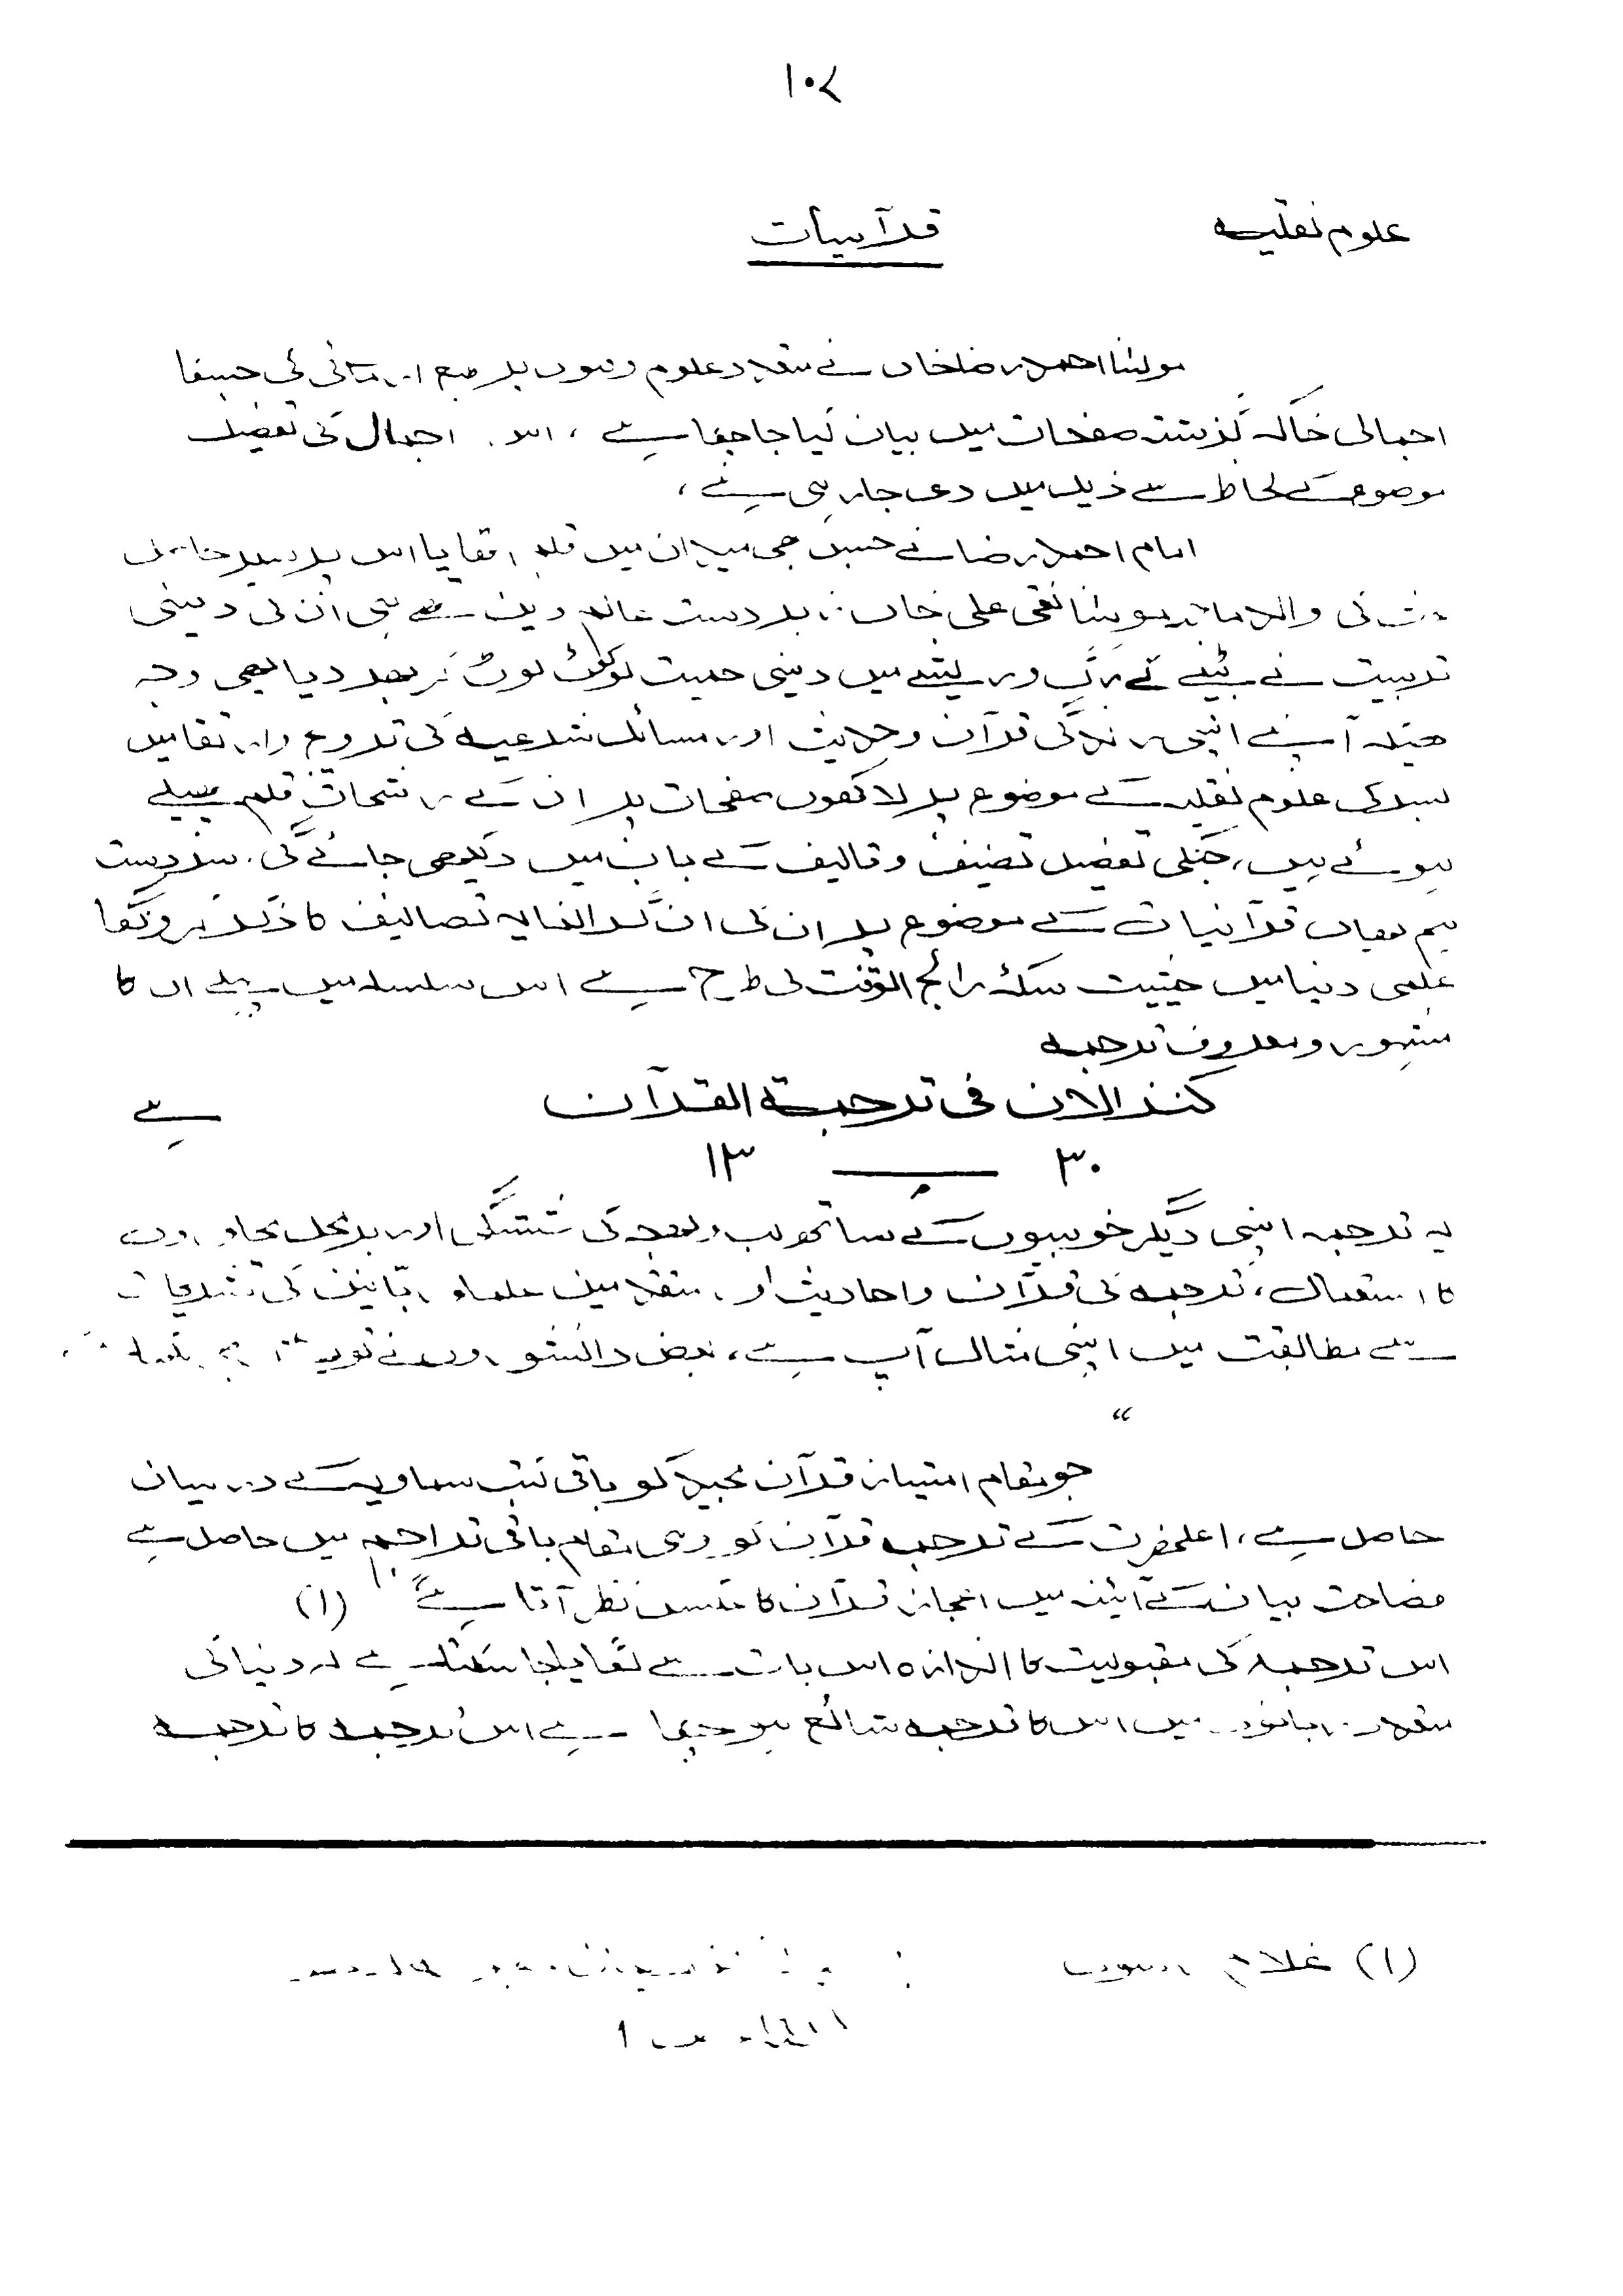 ۱۰۲
علوم نقلیہ
قرآنیات
مولٰنا احمد رضا خاں نے متعدد علوم وفنون پر طبع آزمائی کی جسکا
اجمالی خاکہ گذشتہ صفحات میں بیان کیا جا چکا ہے ، اس اجمال کی تفصیل
موضوع کے لحاظ سے ذیل میں دی جا رہی ہے ،
امام احمد رضا نے جس بھی میدان میں قلم اٹھایا اس پر سیر حاصل
والد ماجد مولٰنا نقی علی خاں زبردست عالم دین تھے ہی ان کی دینی
تربیت نے بیٹے کے رگ و ریشے میں دینی حمیت کوٹ کوٹ کر بھر دیا یہی وجہ
ھیکہ آپ نے اپنی زندگی قرآن وحدیث اور مسائل شرعیہ کی ترویج و تفا میں
بسر کی علوم نقلیہ کے موضوع پر لاکھوں صفحات پر ان کے رشحات قلم پھیلے
ہوئے ہیں ، جنکی تفصیل تصنیف و تالیف کے باب میں دیکھی جائے گی . سردست
ہم یہاں قرآنیات کے موضوع پر ان کی ان گراں مایہ تصانیف کا ذکر کرونگا
علمی دنیا میں حیثیت سکۂ رائج الوقت کی طرح ہے اس سلسلہ میں پہلے ان کا
مشہور و معروف ترجمہ
کنز الایمان فی ترجمۃ القرآن ہے
۳۰ ــــــ ۱۳
یہ ترجمہ اپنی دیگر خوبیوں کے ساتھ لب ولہجہ کی شستگی اور برمحل محاوروں
کا استعمال ، ترجمہ کی قرآن و احادیث اور متقدمین علماء ربانین کی تشریحات
سے مطابقت میں اپنی مثال آپ ہے ، بعض دانشوروں نے تو یہ
“
جو مقام امتیاز قرآن مجید کو باقی کتب سماویہ کے درمیان
حاصل ہے ، اعلحضرت کے ترجمہ قرآن کو وہی مقام باقی تراجم میں حاصل ہے
فصاحت بیان کے آئینہ میں اعجاز قرآن کا عکس نظر آتا ہے " (۱)
اس ترجمہ کی مقبولیت کا اندازہ اس بات سے لگایا جا سکتا ہے کہ دنیا کی
متعدد زبانوں میں اس کا ترجمہ شائع ہو چکا ہے اس ترجمہ کا ترجمہ
(۱) غلام رسول :